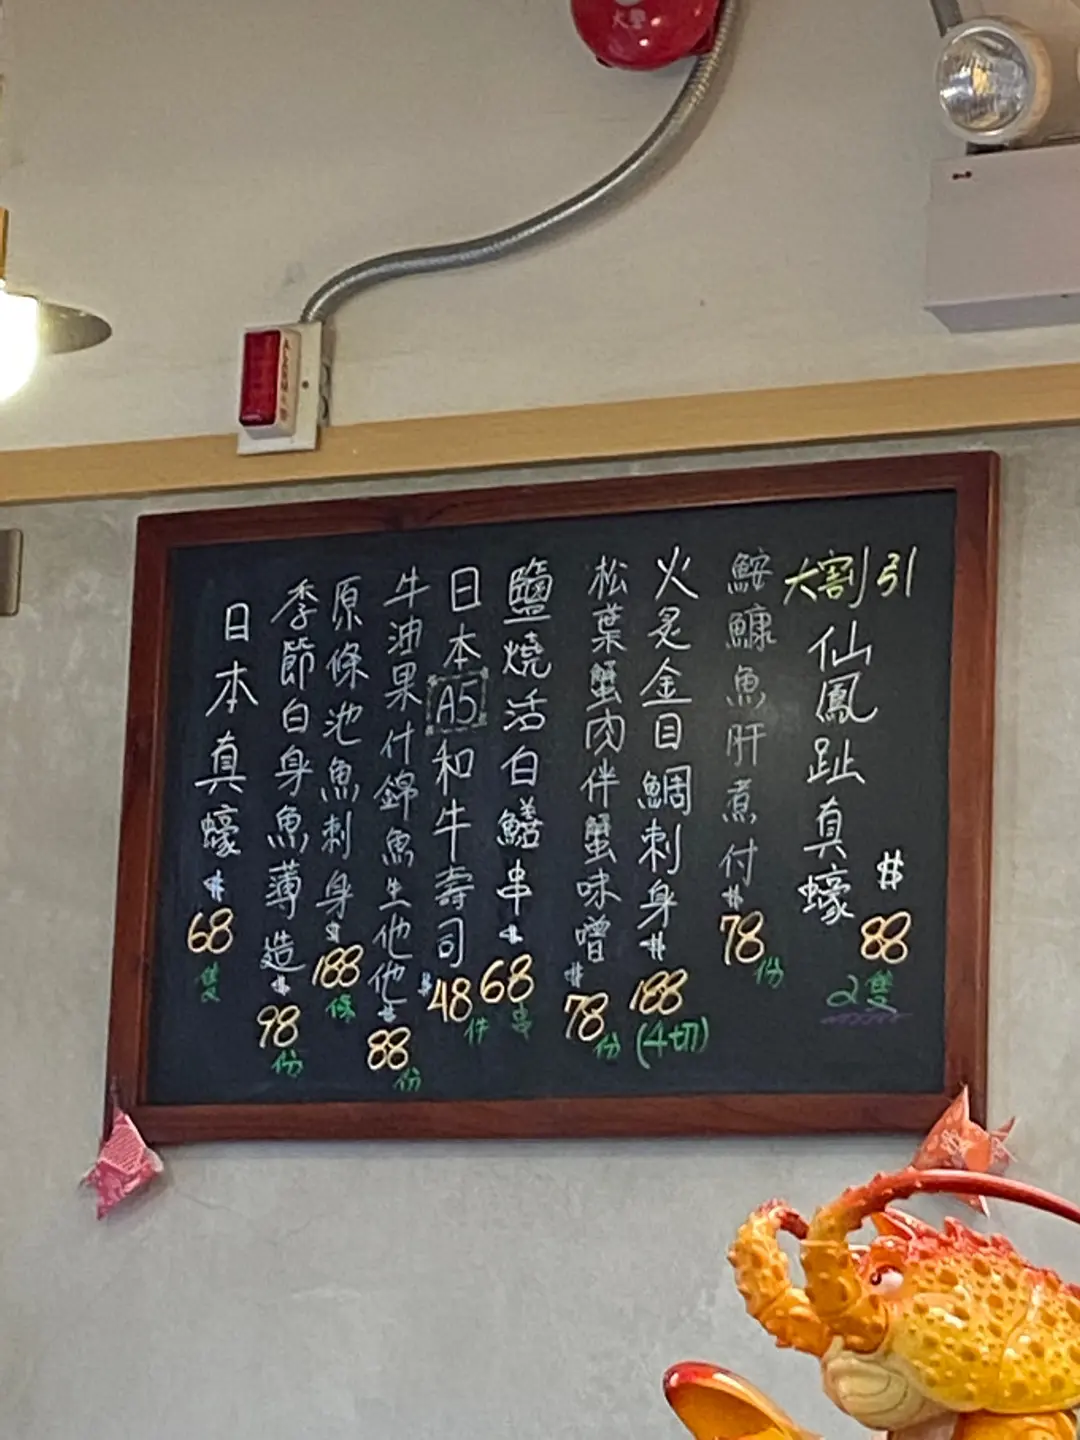 火警
ALARM
大割引
仙鳳趾真蠔
$88
2隻
鮟鱇魚肝煮付
$78
份
火炙金目鯛刺身
$188
(4切)
松葉蟹肉伴蟹味噌
$78
份
鹽燒活白鱔串
$68
串
日本A5和牛壽司
$48
件
牛油果什錦魚生他他
$88
份
原條池魚刺身
$188
條
季節白身魚薄造
$98
份
日本真蠔
$68
隻